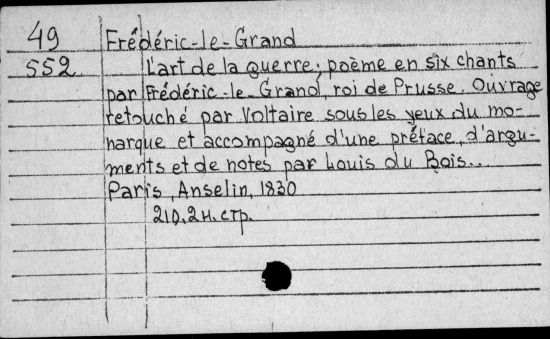 49 Frédéric-le-Grand
552 L'art de la guerre; poème en six chants
par Frédéric-le-Grand, roi de Prusse. Ouvrage
retouché par Voltaire sous les yeux du mo-
narque et accompagné d'une préface, d'argu-
ments et de notes par Louis du Bois..
Paris, Anselin, 1830
210, 2 н. стр.